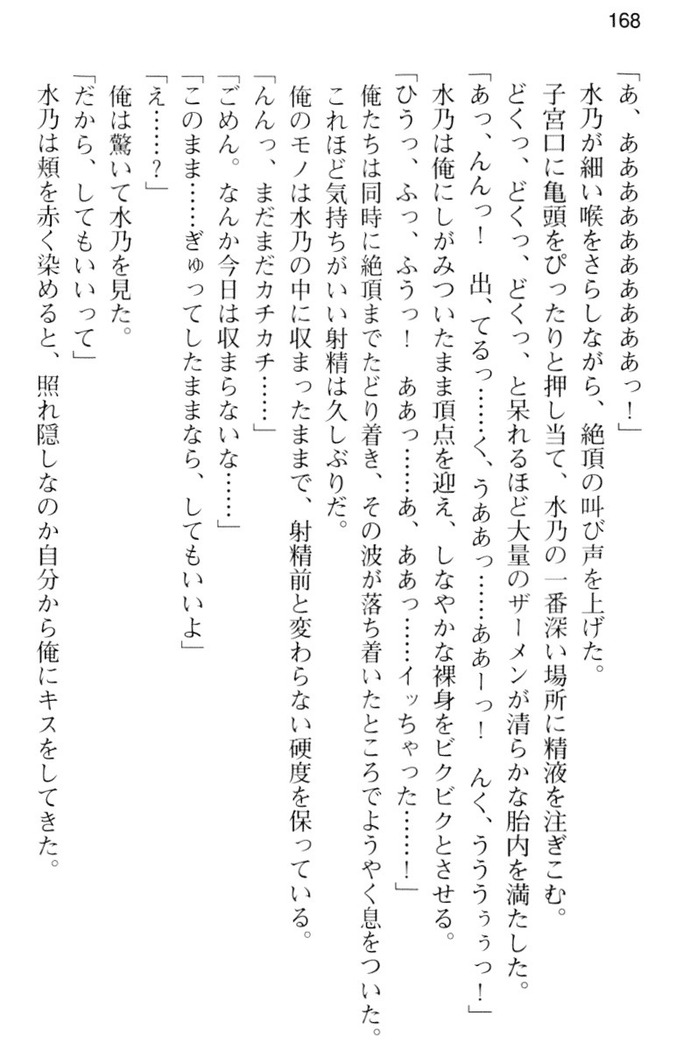 168
「あ、ああああああああああっ！」
水乃が細い喉をさらしながら、絶頂の叫び声を上げた。
子宮口に亀頭をぴったりと押し当て、水乃の一番深い場所に精液を注ぎこむ。
どくっ、どくっ、どくっ、と呆れるほど大量のザーメンが清らかな胎内を満たした。
「あっ、んんっ！　出、てるっ……く、うああっ……ああーっ！　んく、うううぅぅっ！」
水乃は俺にしがみついたまま頂点を迎え、しなやかな裸身をビクビクとさせる。
「ひうっ、ふっ、ふうっ！　ああっ……あ、ああっ……イッちゃった……！」
俺たちは同時に絶頂までたどり着き、その波が落ち着いたところでようやく息をついた。
これほど気持ちがいい射精は久しぶりだ。
俺のモノは水乃の中に収まったままで、射精前と変わらない硬度を保っている。
「んんっ、まだまだカチカチ……」
「ごめん。なんか今日は収まらないな……」
「このまま……ぎゅってしたままなら、してもいいよ」
「え……？」
俺は驚いて水乃を見た。
「だから、してもいいって」
水乃は頬を赤く染めると、照れ隠しなのか自分から俺にキスをしてきた。